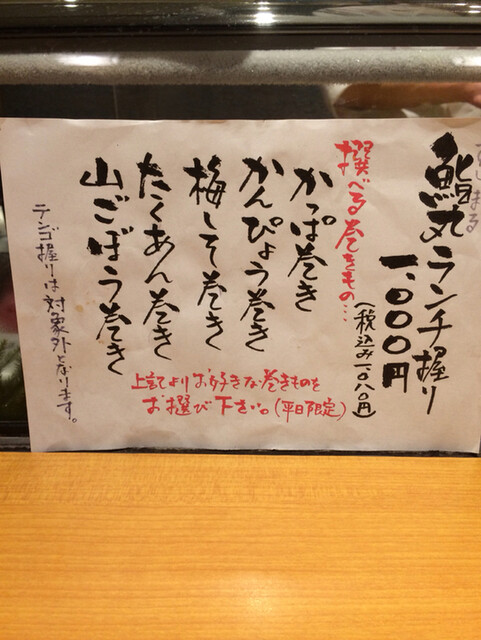 すし まる
鮨丸ランチ握り
一、〇〇〇円
(税込み一、〇八〇円)
撰べる巻きもの…
かっぱ巻き
かんぴょう巻き
梅しそ巻き
たくあん巻き
山ごぼう巻き
上記よりお好きな巻きものを
お選び下さい。(平日限定)
テンゴ握りは対象外となります。